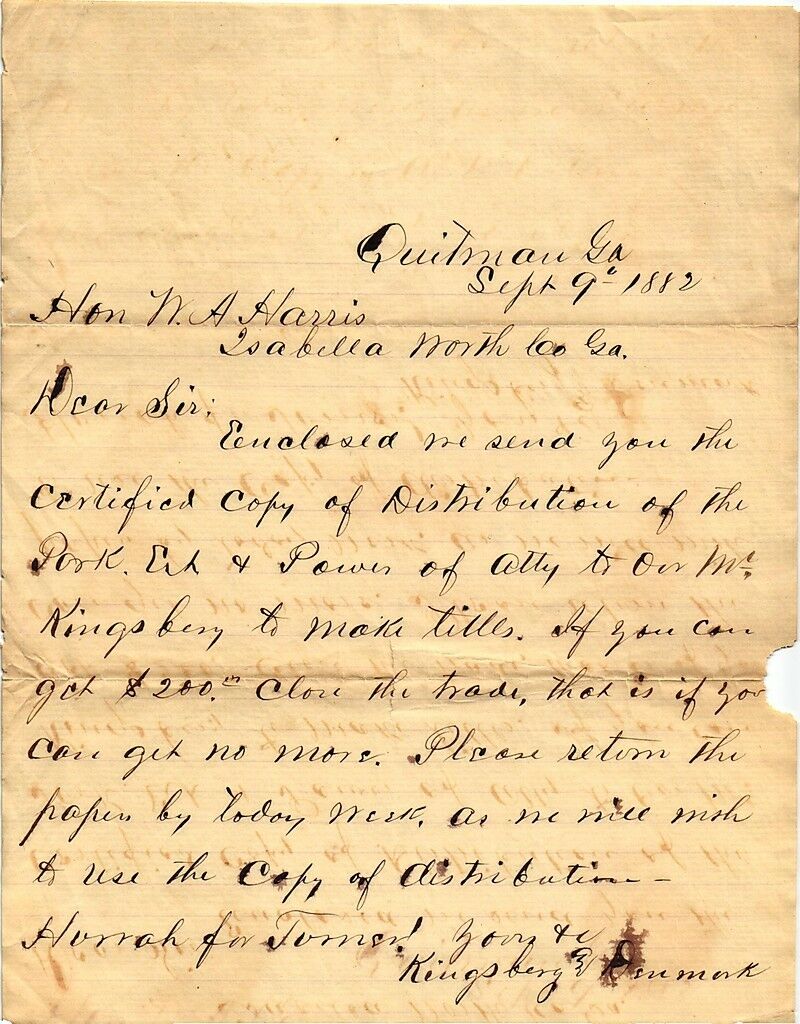 Quitman Ga
Sept 9" 1882
Hon W. A Harris
Isabella Worth Co Ga.
Dear Sir:
Enclosed we send you the
certified copy of Distribution of the
Park. Est & Power of atty to our Mr.
Kingsbery to make titles. If you can
get $200.00 Close the trade, that is if you
can get no more. Please return the
papers by today week, as we will wish
to use the Copy of distribution —
Hurrah for Turner! Yours &c
Kingsbery & Denmark